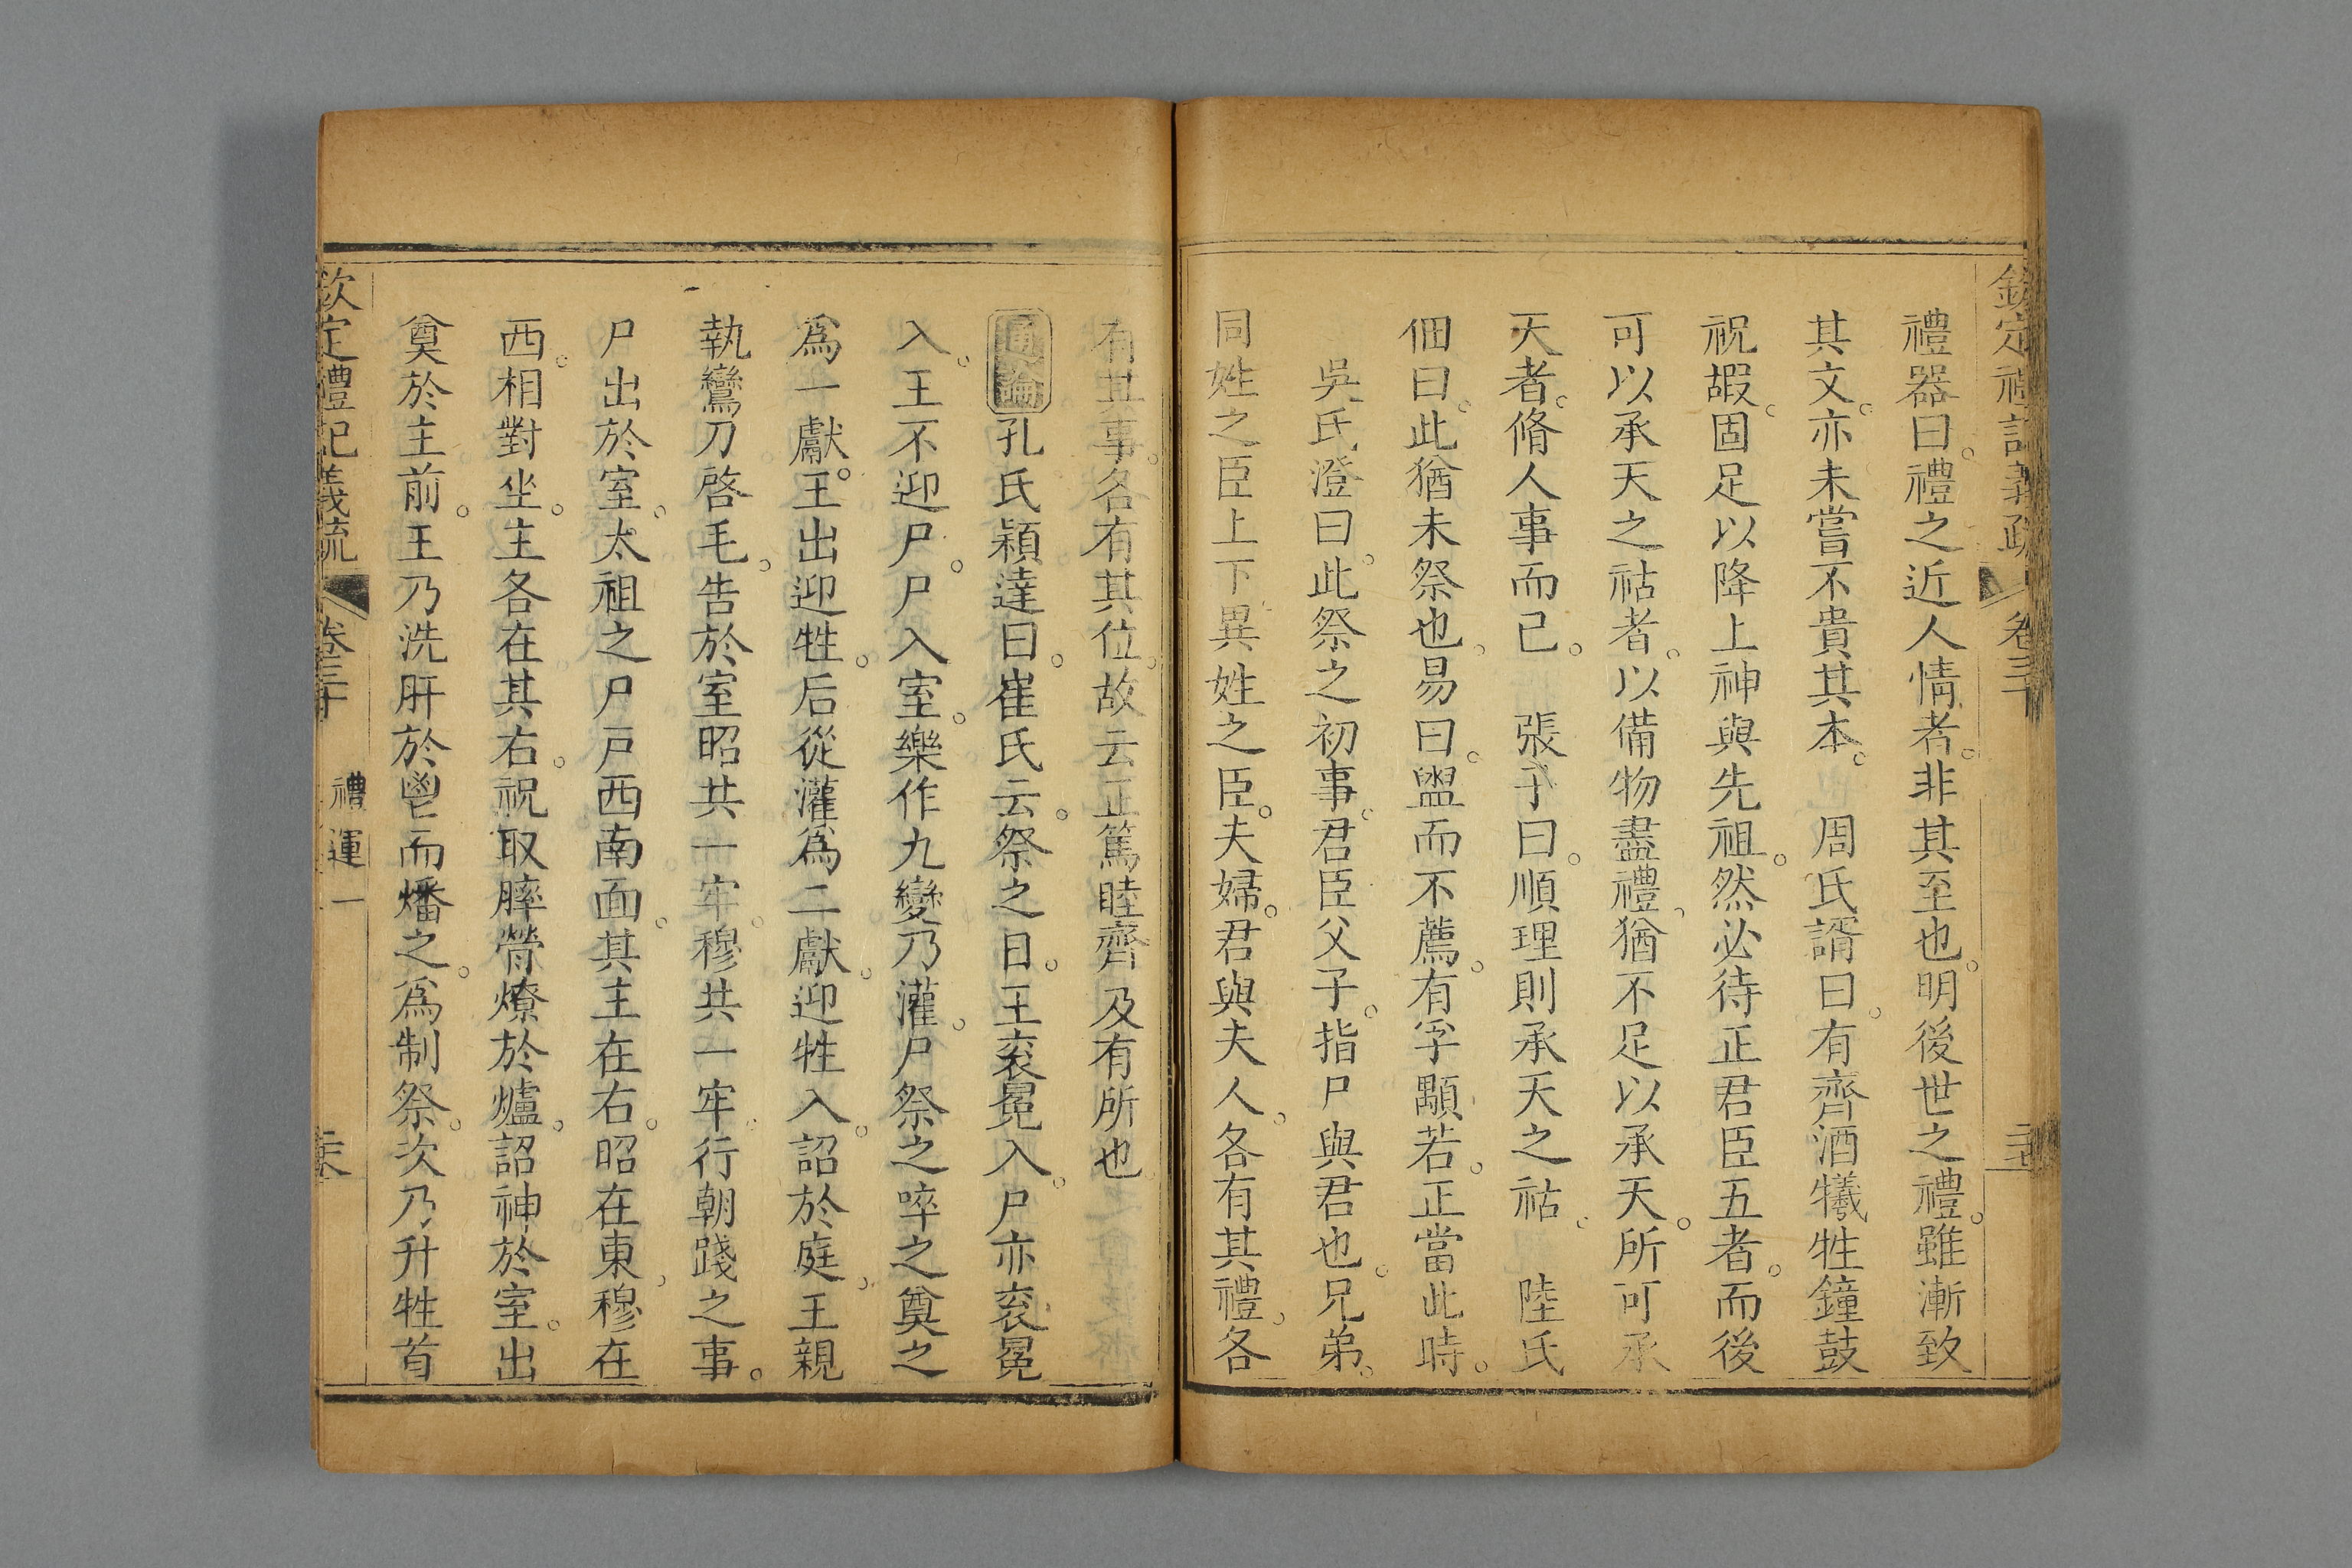 欽定禮記義疏 卷三十
禮器曰。禮之近人情者。非其至也。明後世之禮。雖漸致
其文。亦未嘗不貴其本。　周氏諝曰。有齊酒犧牲鐘鼓
祝嘏。固足以降上神與先祖。然必待正君臣五者。而後
可以承天之祜者。以備物盡禮。猶不足以承天。所可承
天者。脩人事而已。　張子曰。順理則承天之祜。　陸氏
佃曰。此猶未祭也。易曰。盥而不薦。有孚顒若。正當此時。
吳氏澄曰。此祭之初事。君臣父子。指尸與君也。兄弟。
同姓之臣上下異姓之臣。夫婦。君與夫人。各有其禮。各
有其事。各有其位。故云正篤睦齊及有所也
通論 孔氏穎達曰。崔氏云。祭之日。王袞冕入。尸亦袞冕
入。王不迎尸。尸入室。樂作九變乃灌。尸祭之啐之奠之
爲一獻。王出迎牲。后從灌爲二獻。迎牲入。詔於庭。王親
執鸞刀啓毛。告於室昭共一牢。穆共一牢。行朝踐之事。
尸出於室。太祖之尸戸西南面。其主在右。昭在東。穆在
西。相對坐。主各在其右。祝取膟膋燎於爐。詔神於室。出
奠於主前。王乃洗肝於鬯而燔之。爲制祭。次乃升牲首
欽定禮記義疏 卷三十 禮運一